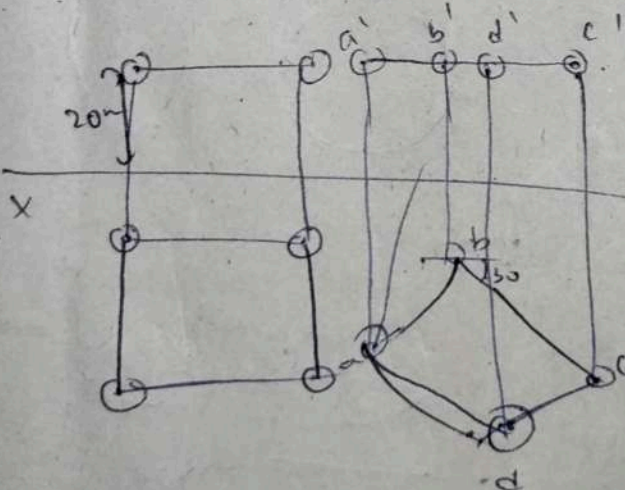 a' b' d' c'
20
X
b
30
a
c
d